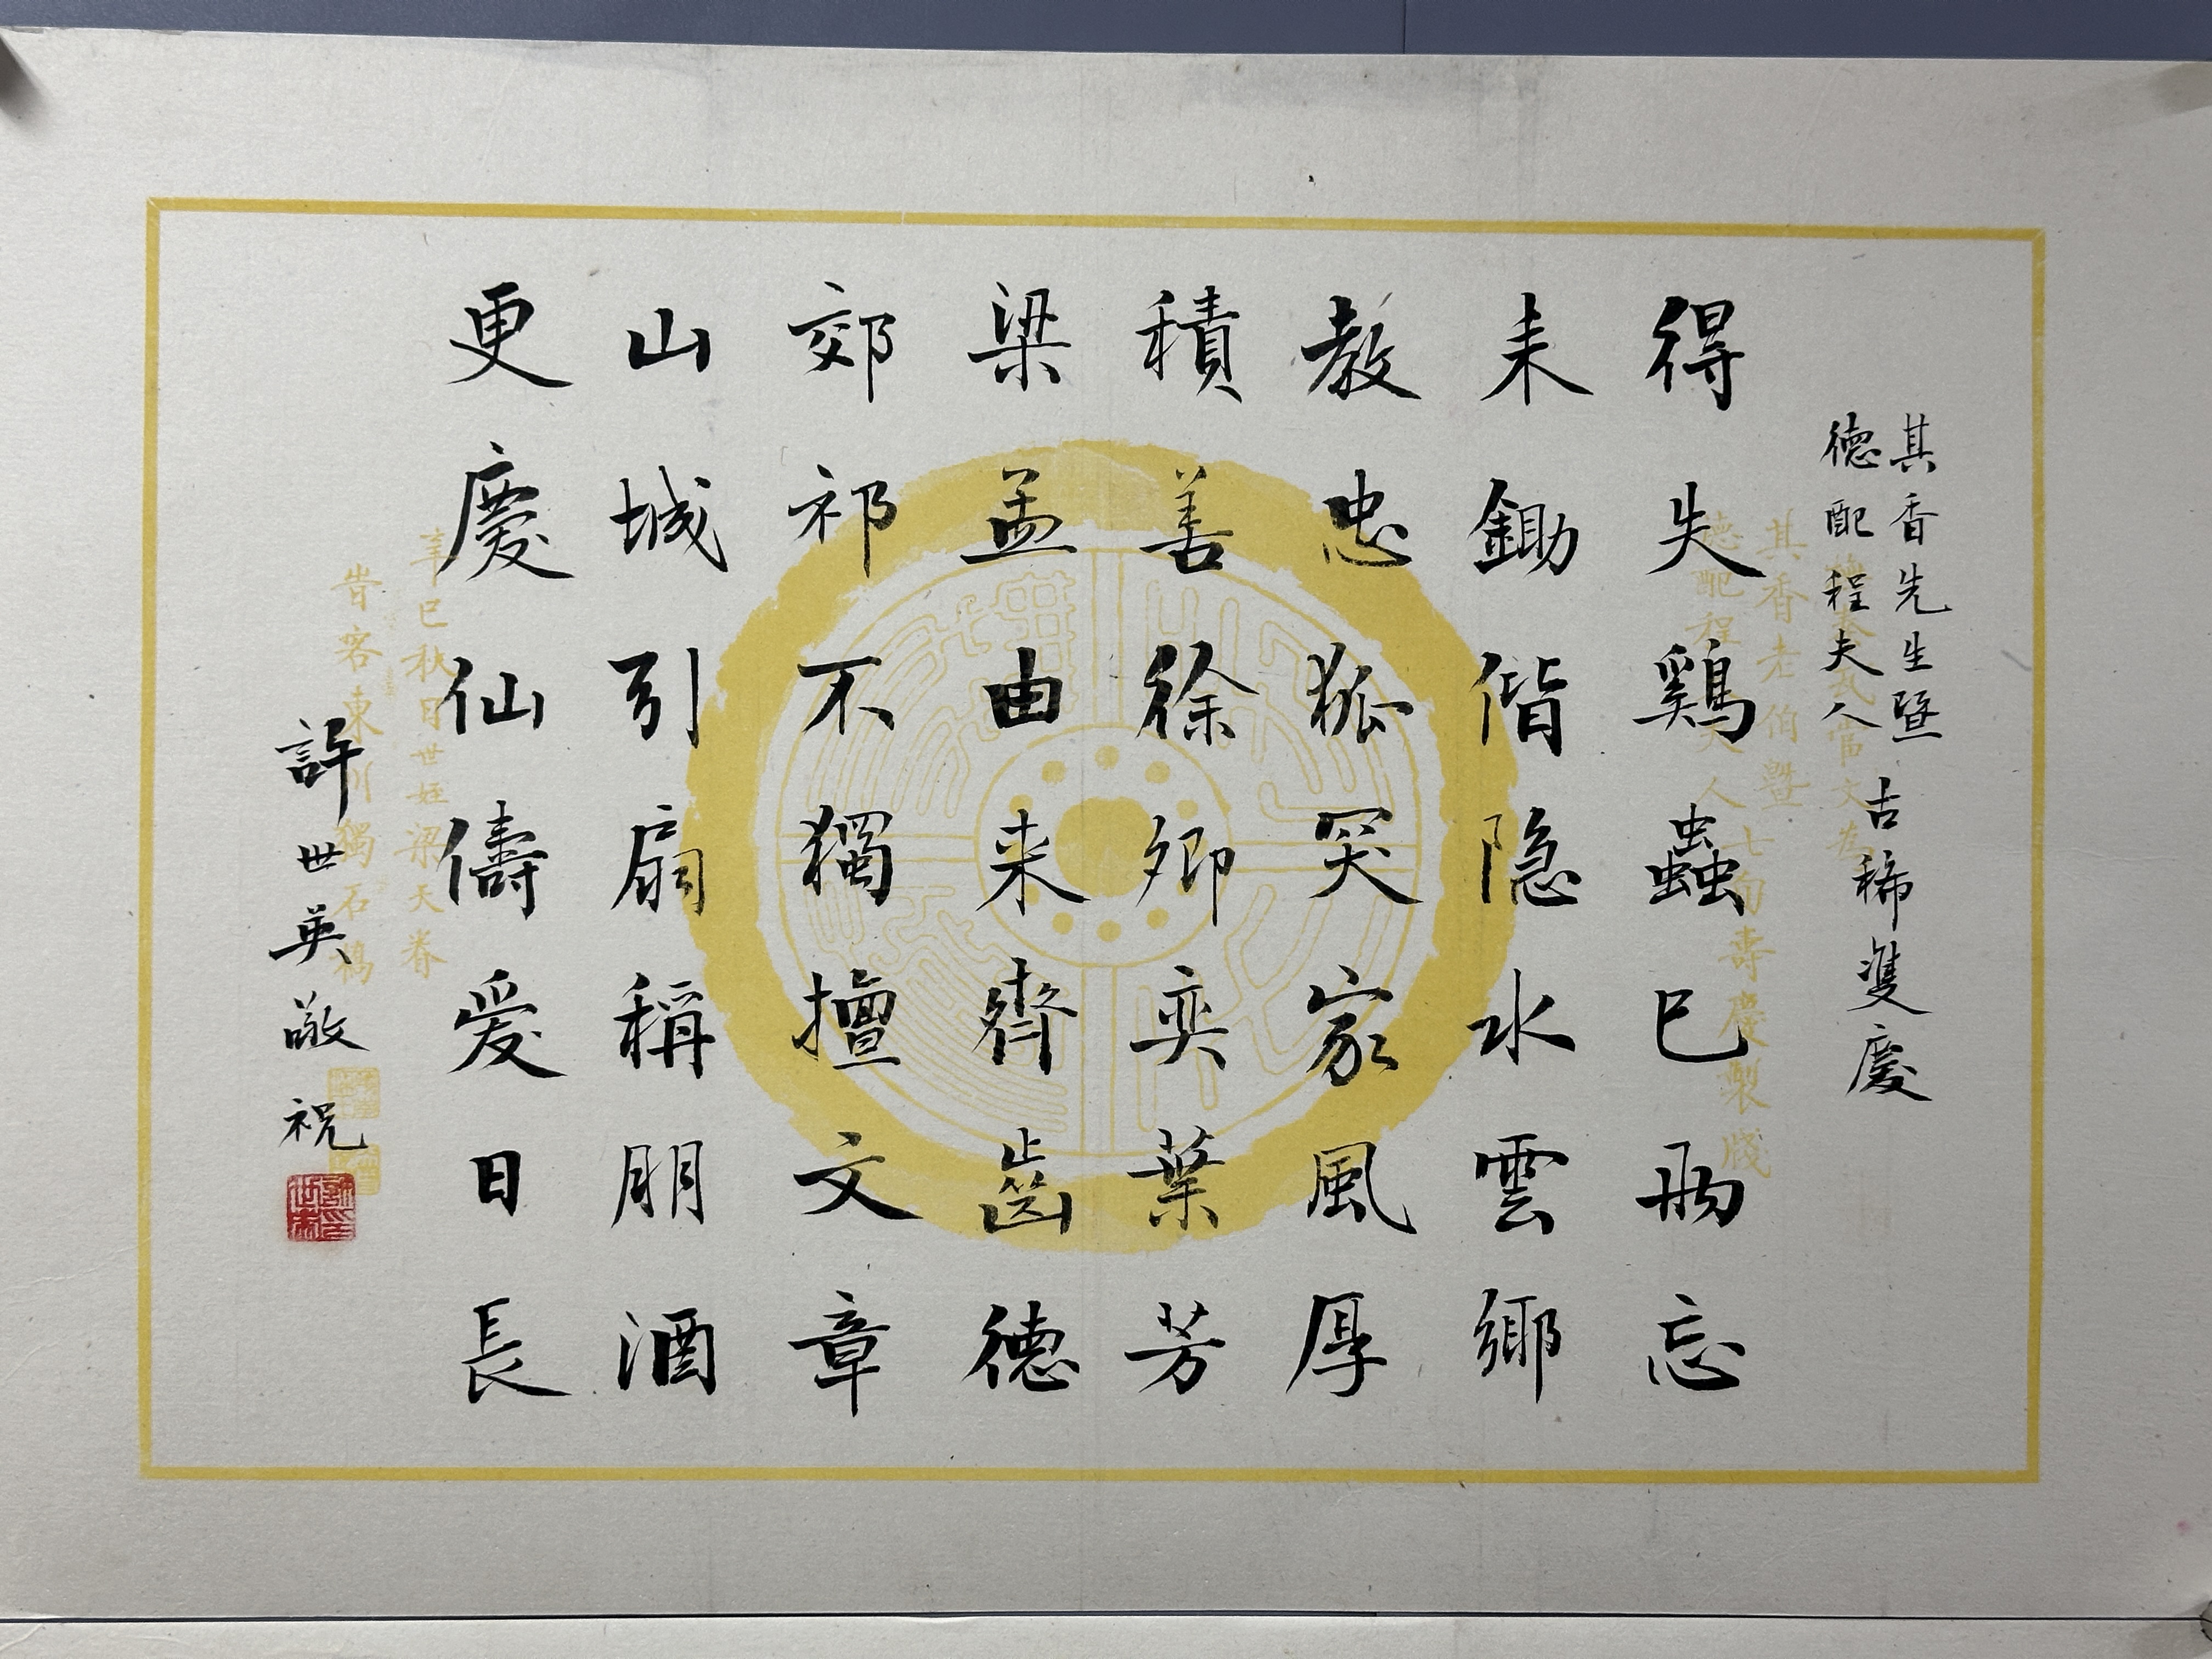 其香先生暨
德配程夫人
古稀雙慶
得失鷄蟲已兩忘
耒鋤偕隐水雲鄉
教忠狐突家風厚
積善徐卿奕葉芳
梁孟由来齊齒德
郊祁不獨擅文章
山城引扇稱朋酒
更慶仙儔爰日長
許世英敬祝
其香老伯暨
德配程夫人七旬壽慶製牋
辛巳秋日世姪梁天眷
旹客東川獨石橋